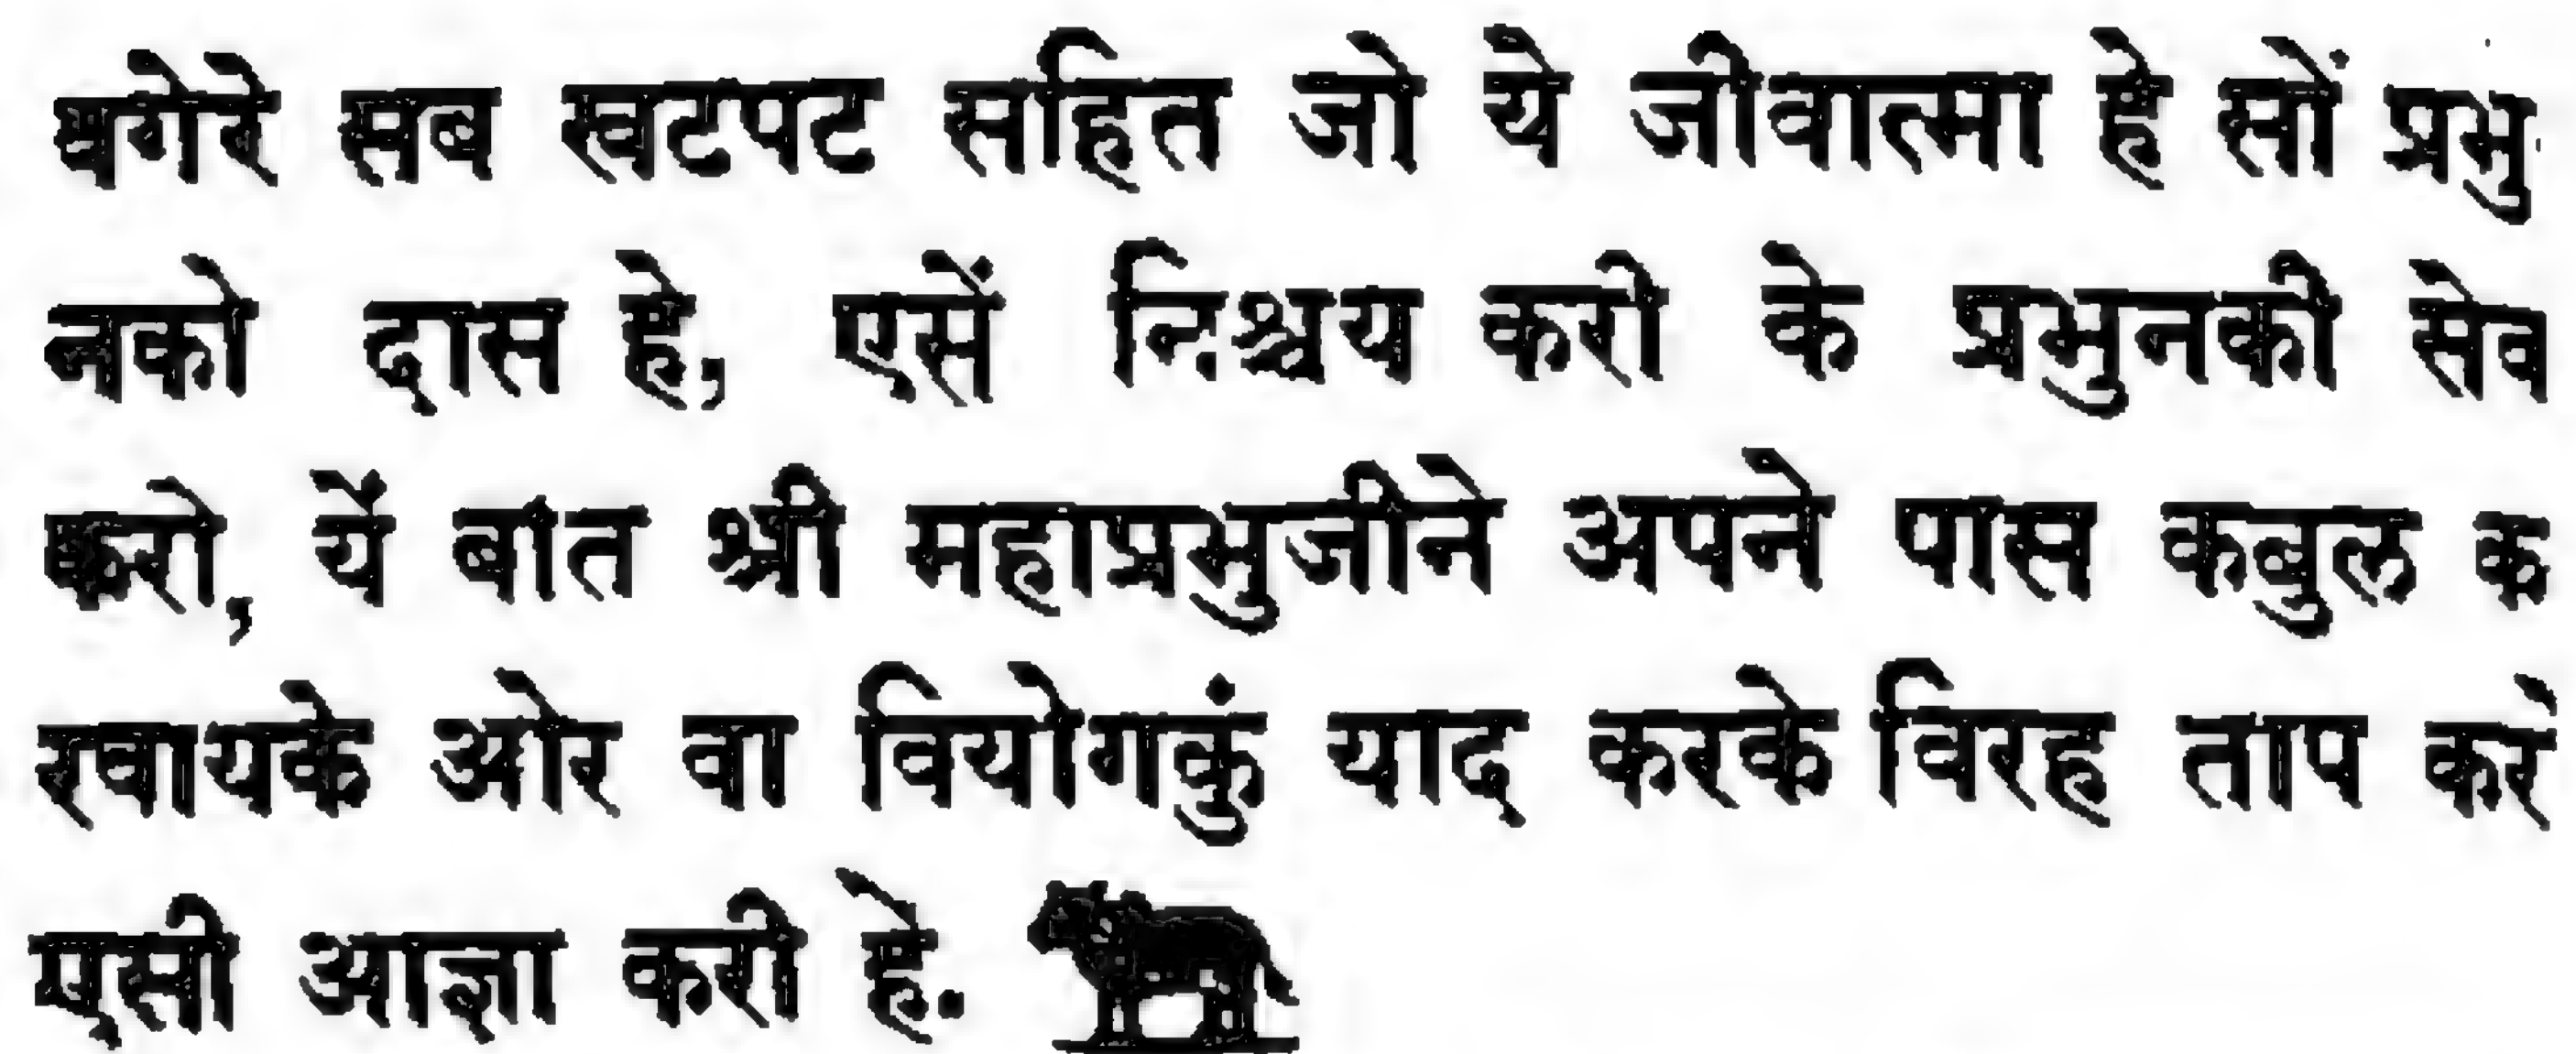 वगेरे सब खटपट सहित जो ये जीवात्मा हे सों प्रभु
नको दास हे, एसें निश्चय करी के प्रभुनकी सेव
करो, यें बात श्री महाप्रभुजीने अपने पास कबुल क
रवायके ओर वा वियोगकुं याद करके विरह ताप करे
एसी आज्ञा करी हे.